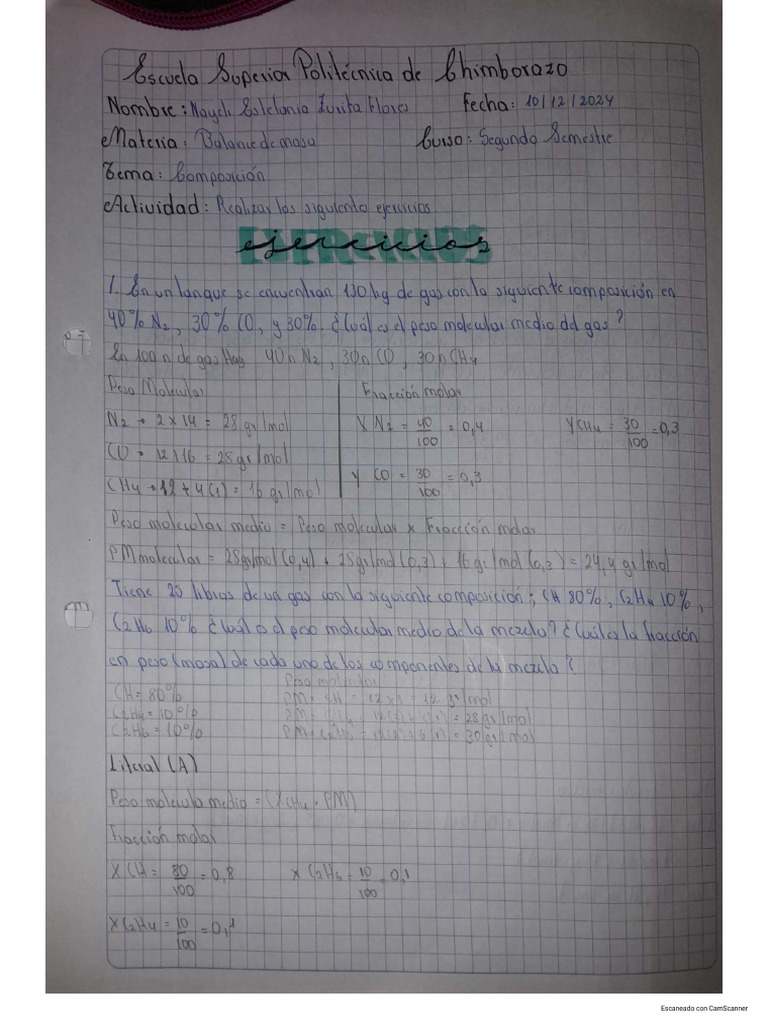 Escuela Superior Politécnica de Chimborazo
Nombre: Nayeli Estefania Zurita Flores Fecha: 10/12/2024
Materia: Balance de masa Curso: Segundo Semestre
Tema: Composición
Actividad: Realizar los siguiente ejercicios
EJERCICIOS
ejercicios
1. En un tanque se encuentran 130 kg de gas con la siguiente composición en
40% N2, 30% CO, y 30%. ¿Cuál es el peso molecular medio del gas?
En 100 n de gas Hay 40n N2, 30n CO, 30n CH4
Peso Molecular Fracción molar
N2 → 2 x 14 = 28 gr/mol X N2 = 40/100 = 0,4 Y CH4 = 30/100 = 0,3
CO → 12+16 = 28 gr/mol
Y CO = 30/100 = 0,3
CH4 → 12 + 4(1) = 16 gr/mol
Peso molecular medio = Peso molecular x Fracción molar
PM molecular = 28gr/mol (0,4) + 28gr/mol (0,3) + 16 gr/mol (0,3) = 24,4 gr/mol
Tiene 20 libras de un gas con la siguiente composición; CH 80%, C2H4 10%,
C2H6 10% ¿Cuál es el peso molecular medio de la mezcla? ¿Cuál es la fracción
en peso (masa) de cada uno de los componentes de la mezcla?
Peso molecular
CH = 80% PM = CH = 12 x 1 = 12 gr/mol
C2H4 = 10% PM = = 28 gr/mol
C2H6 = 10% PM = C2H6 = = 30 gr/mol
Literal (A)
Peso molecula medio = (XCH4 · PM)
Fracción molar
X CH = 80/100 = 0,8 X C2H6 = 10/100 = 0,1
X C2H4 = 10/100 = 0,1
Escaneado con CamScanner